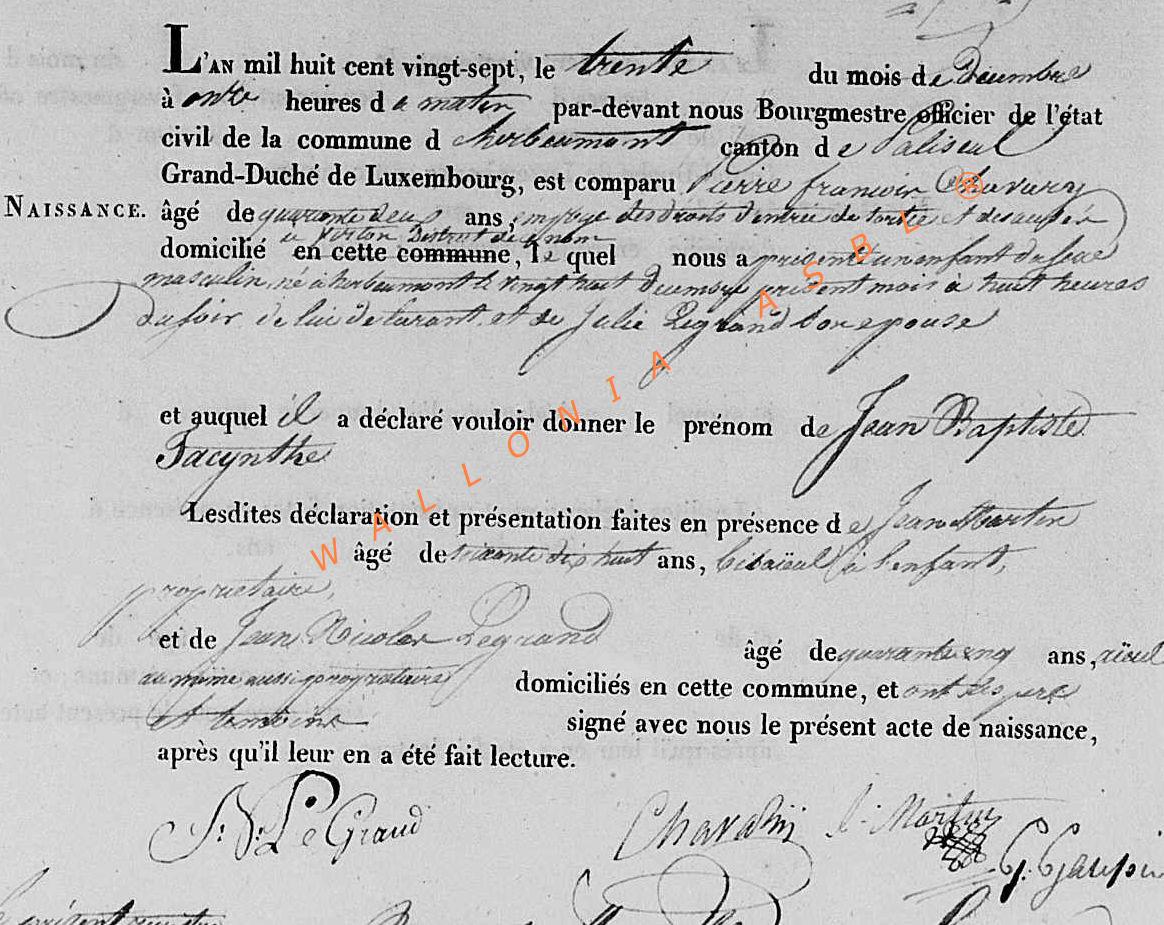 L'AN mil huit cent vingt-sept, le trente du mois de Decembre
à onze heures du matin par-devant nous Bourgmestre officier de l'état
civil de la commune d'herbeumont canton de Paliseul
Grand-Duché de Luxembourg, est comparu Pierre francois ®
NAISSANCE. âgé de quarante deux ans, employé des droits d'entrée de sortie et des
a Virton District de
domicilié en cette commune, le quel nous a présenté un enfant du sexe
masculin, né a herbeumont le vingt huit decembre présent mois à huit heures
du soir de lui declarant et de Julie Legrand son epouse
et auquel il a déclaré vouloir donner le prénom de Jean Baptiste
Jacynthe
Lesdites déclaration et présentation faites en présence de Jean Martin
âgé de soixante dix huit ans, bisaïeul à l'enfant,
proprietaire,
et de Jean Nicolas Legrand âgé de quarante cinq ans, aïeul
au même aussi proprietaire domiciliés en cette commune, et ont les pere
et temoins signé avec nous le présent acte de naissance,
après qu'il leur en a été fait lecture.
J. N. LeGrand Martin
WALLONIA ASBL